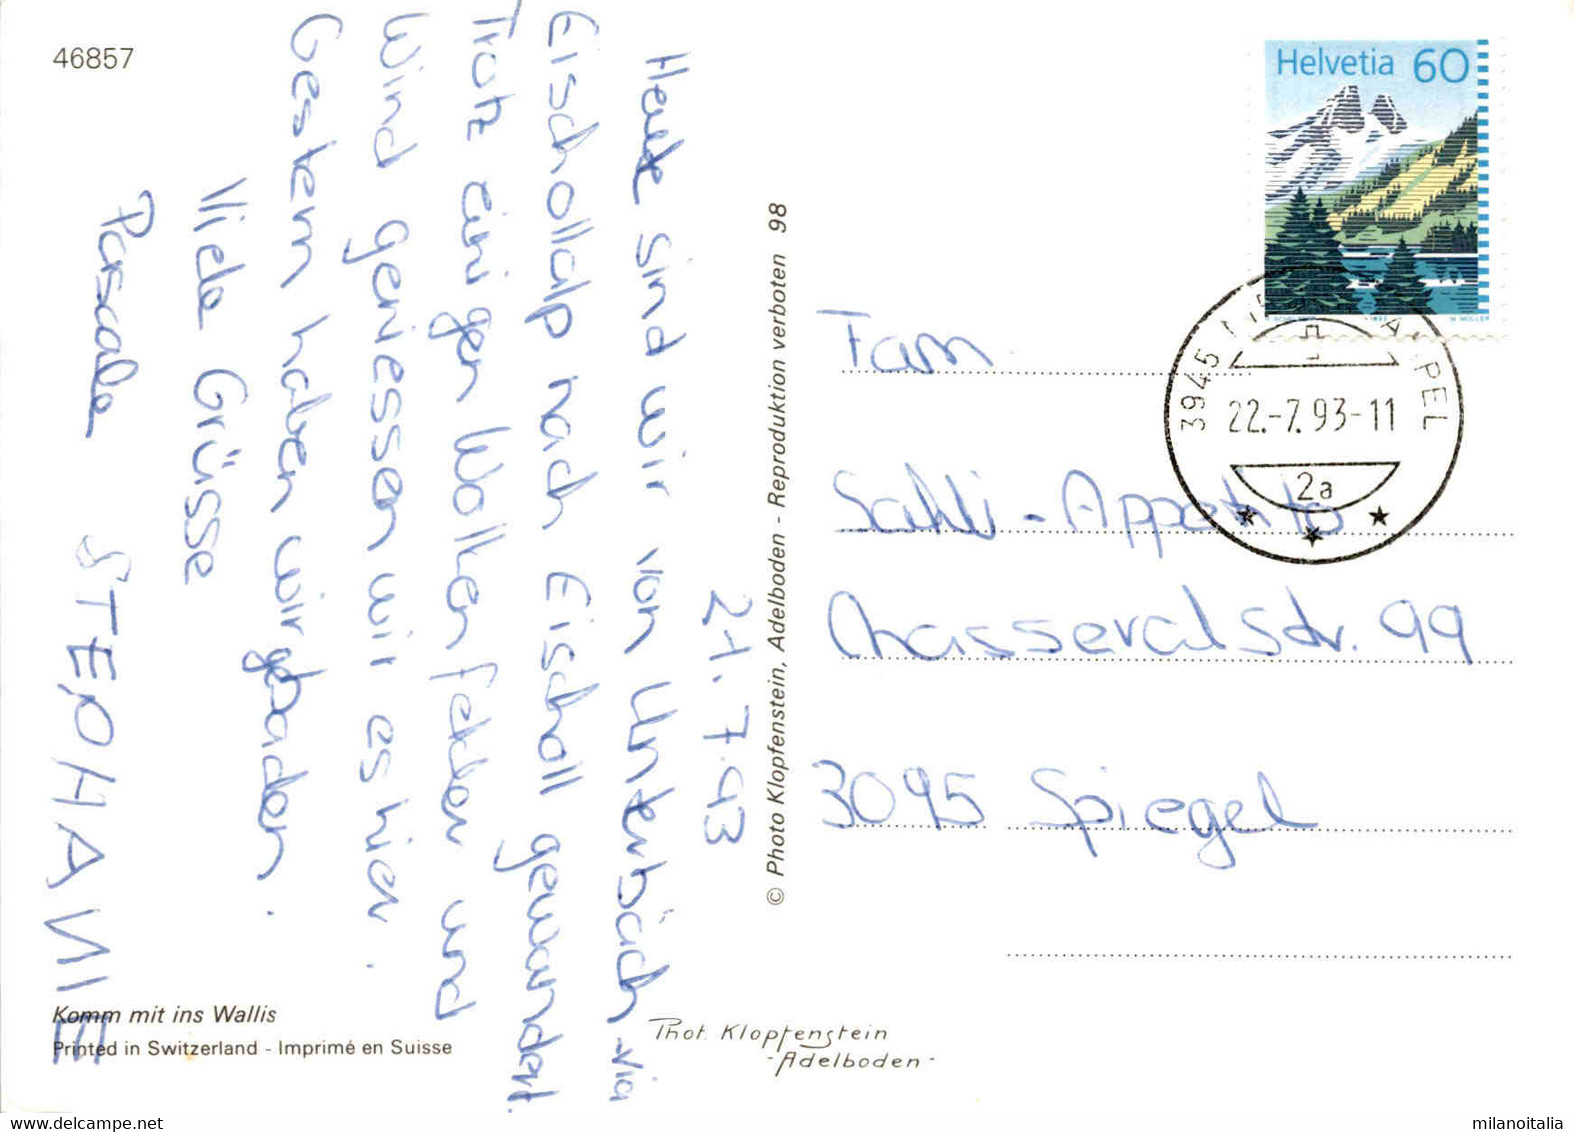 46857
21.7.93
Heute sind wir von Unterbäch via
Eischollalp nach Eischoll gewandert.
Trotz einigen Wolkenfelder und
Wind geniessen wir es hier.
Gestern haben wir gebaden.
Viele Grüsse
Pascale STEPHANIE
Komm mit ins Wallis
Printed in Switzerland - Imprimé en Suisse
© Photo Klopfenstein, Adelboden - Reproduktion verboten 98
Phot. Klopfenstein
- Adelboden -
Helvetia 60
3945
22.-7.93-11
2a
Fam
Sahli-Appetito
Chasseralstr. 99
3095 Spiegel
milanoitalia